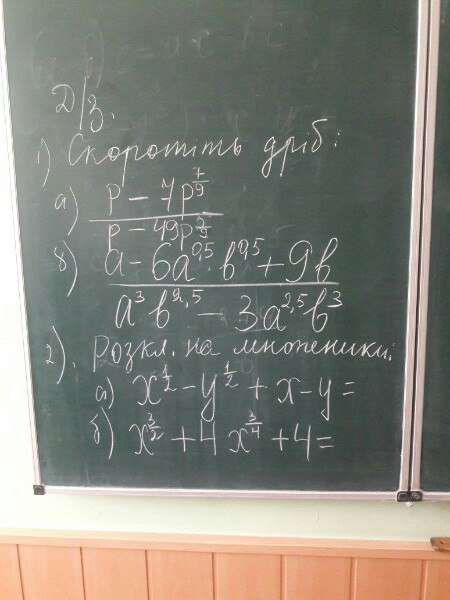 Д/з.
1) Скоротіть дріб:
а) (p - 7p^(7/9)) / (p - 49p^(5/9))
б) (a - 6a^0,5 · b^0,5 + 9b) / (a^3 b^2,5 - 3a^2,5 b^3)
2). Розкл. на множеники:
а) x^(1/2) - y^(1/2) + x - y =
б) x^(3/2) + 4x^(3/4) + 4 =